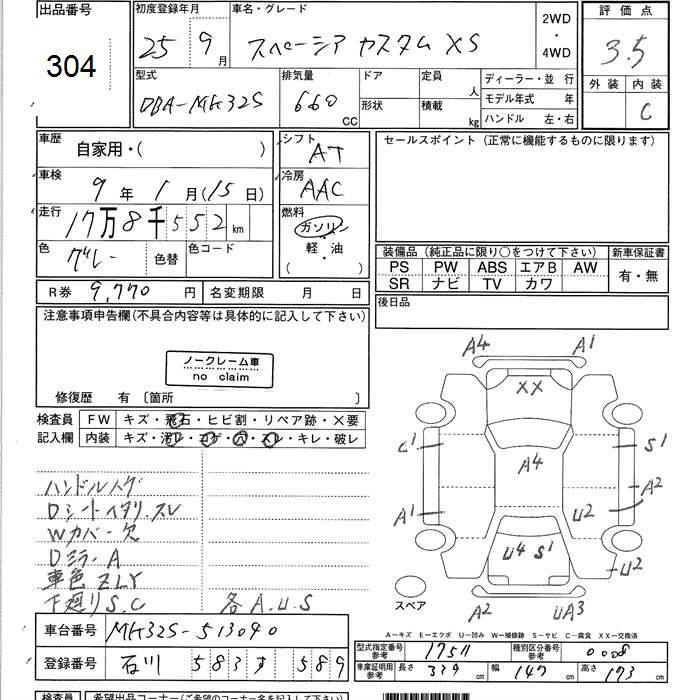 出品番号
304
初度登録年月
25 9 月
車名・グレード
スペーシア カスタム XS
2WD
・
4WD
評価点
3.5
外装 内装
C
型式
DBA-MK32S
排気量
660 CC
ドア
形状
定員 人
積載 kg
ディーラー・並行
モデル年式 年
ハンドル 左・右
車歴
自家用・( )
車検
9 年 1 月(15 日)
走行
17万8千552 km
色
グレー
色替
色コード
シフト
AT
冷房
AAC
燃料
ガソリン
軽・油
( )
セールスポイント(正常に機能するものに限ります)
装備品(純正品に限り○をつけて下さい)
PS PW ABS エアB AW
SR ナビ TV カワ
新車保証書
有・無
R券 9,770 円
名変期限 月 日
後日品
注意事項申告欄(不具合内容等は具体的に記入して下さい)
ノークレーム車
no claim
修復歴 有 〔箇所 〕
検査員
記入欄
FW キズ・飛石・ヒビ割・リペア跡・×要
内装 キズ・汚レ・コゲ・穴・スレ・キレ・破レ
ハンドルハゲ
Dシートヘタリ.スレ
Wカバー欠
Dミラー A
車色 ZLY
下廻り S.C
各 A.U.S
A4 A1
XX
C1 S1
A4
A2
A1 U2
U4 S1
U2
A2 UA3
スペア
A－キズ E－エクボ U－凹み W－補修跡 S－サビ C－腐食 XX－交換済
車台番号 MK32S-513040
登録番号 石川 583 す 589
型式指定番号
参考
17511
種別区分番号
参考
0008
車庫証明用
参考
長さ 339 幅 147 高さ 173
検査員 希望出品コーナー(ご希望のコーナー名を記入して下さい)